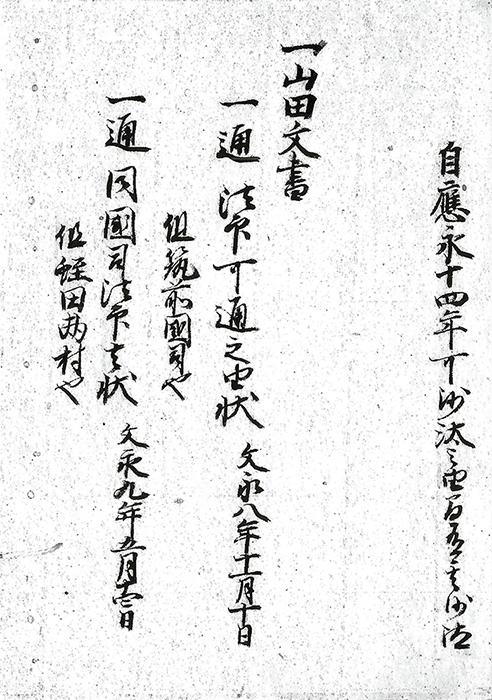 自應永十四年可沙汰之由
一山田文書
一通 法印可通之由状 文永八年十二月十日
但筑前國司也
一通 同國司法印之状 文永九年五月十三日
但蛭田両村也